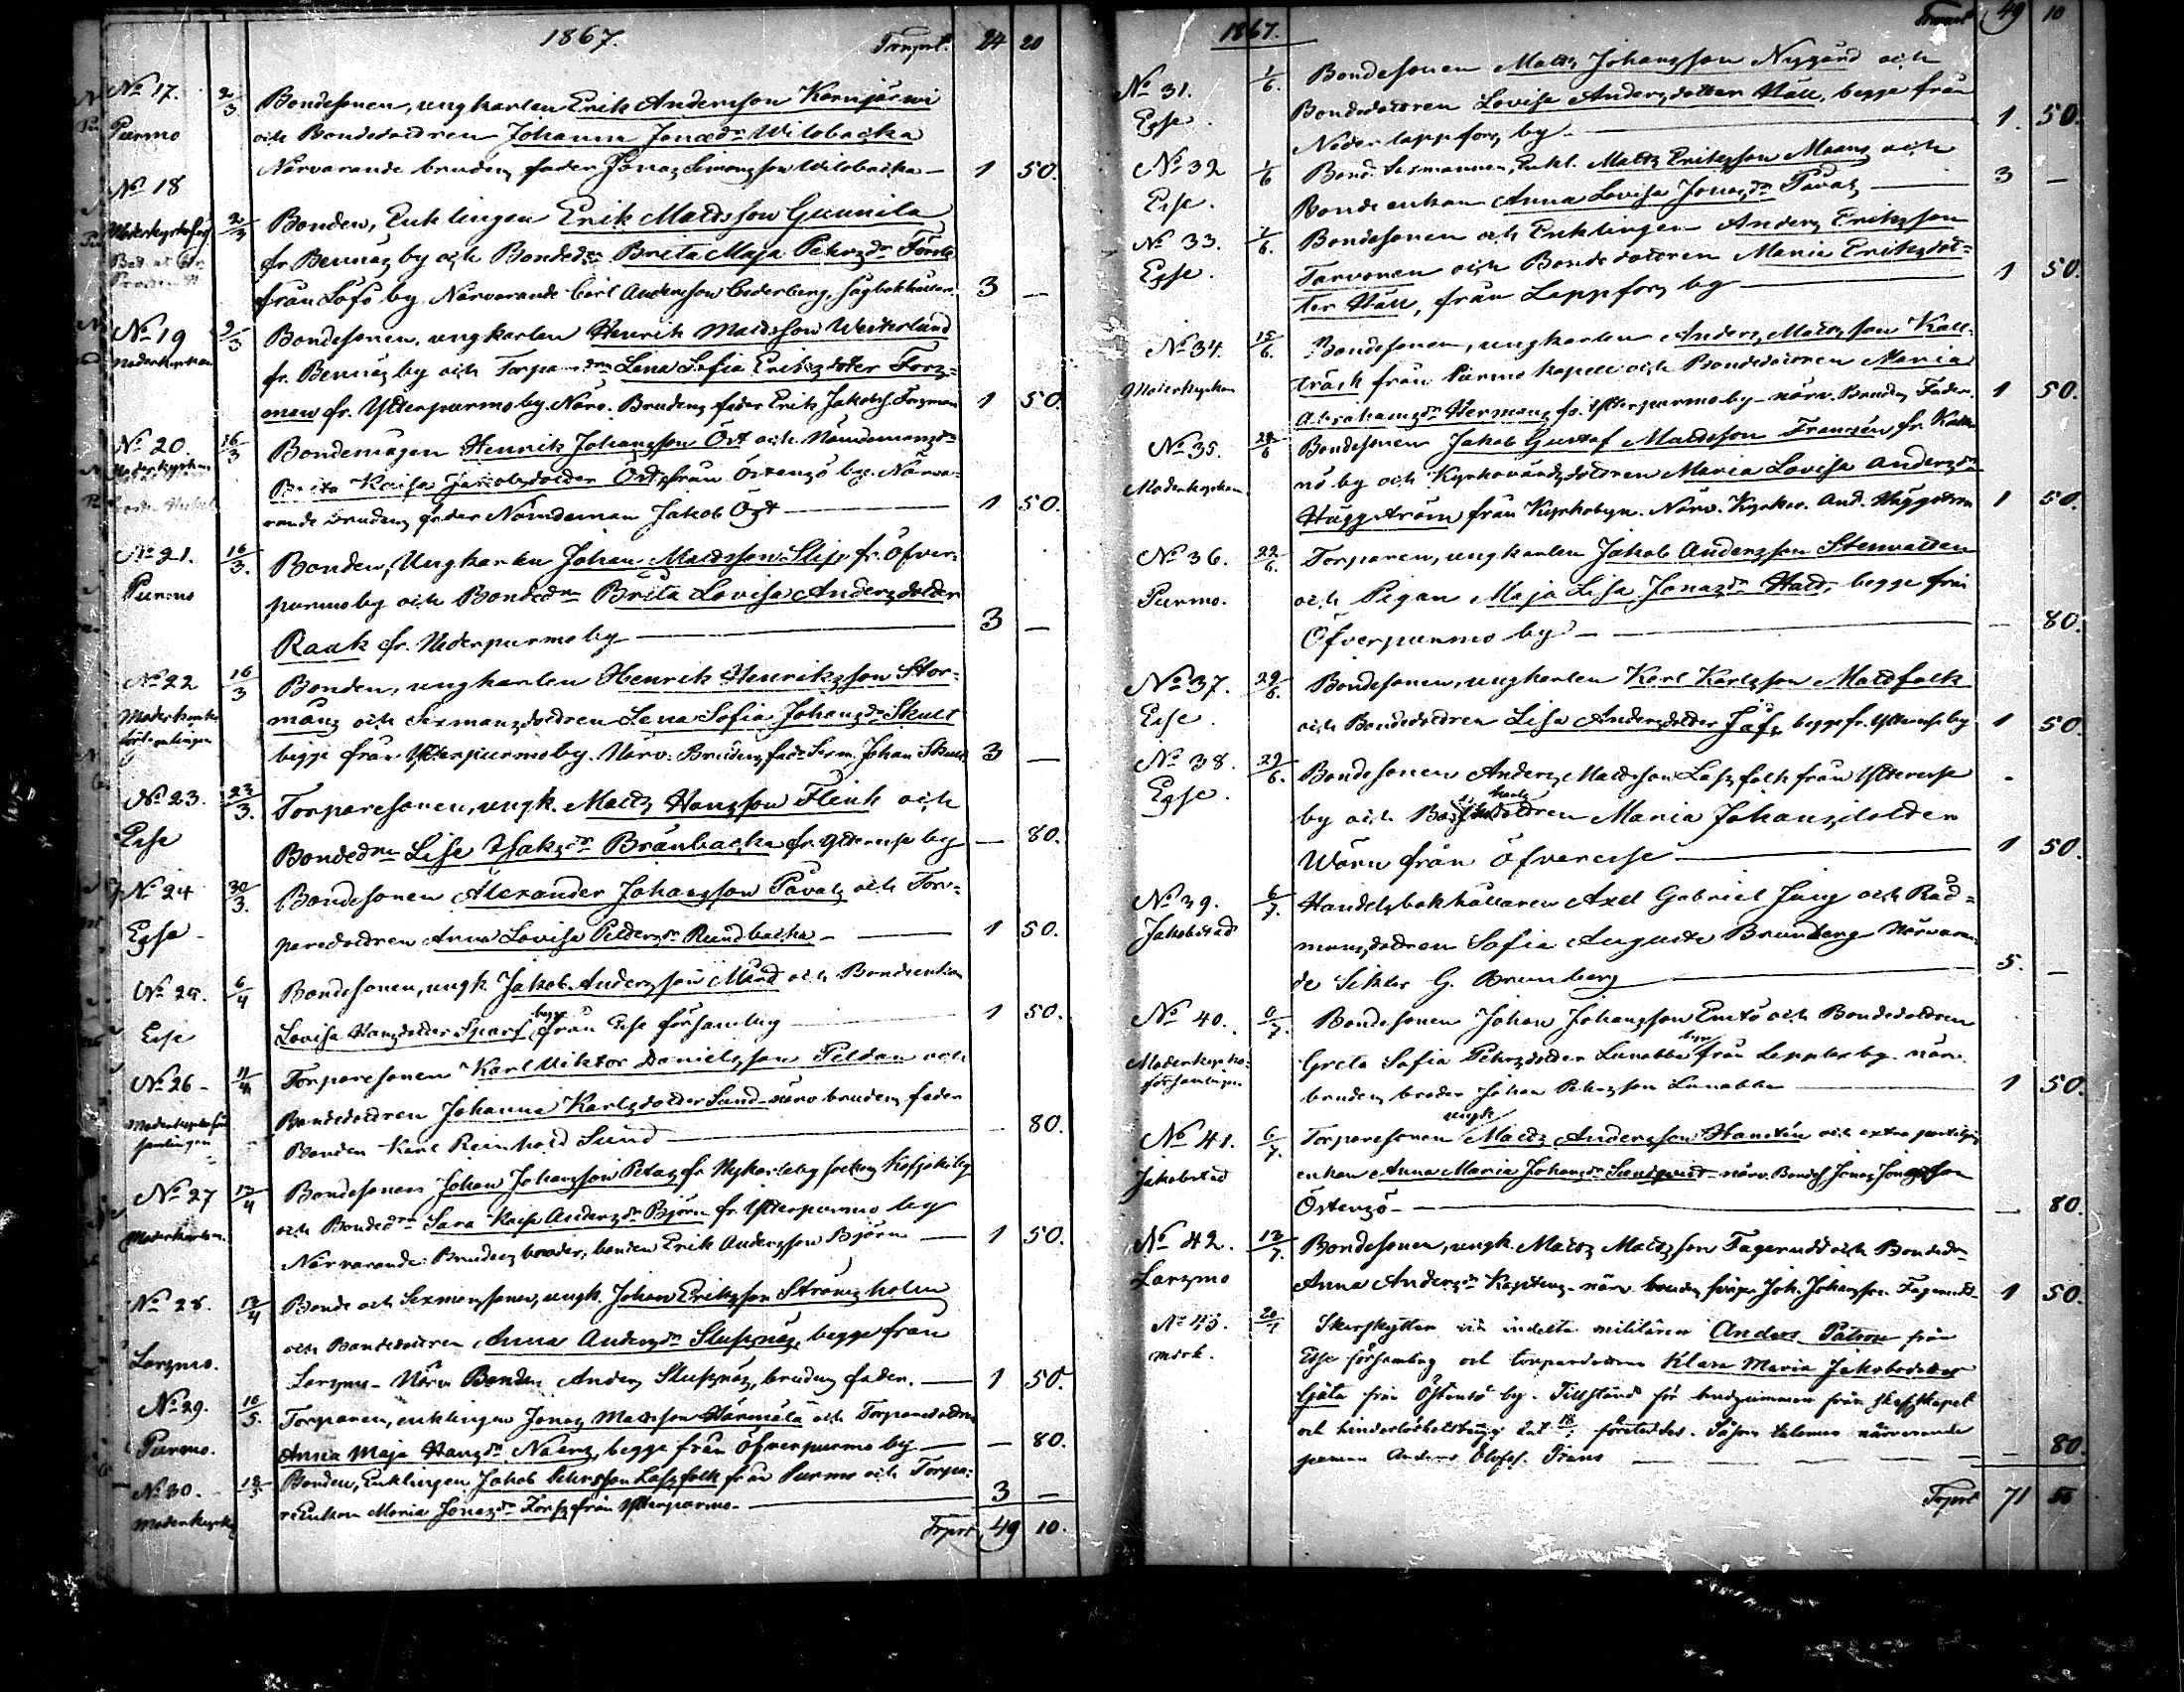 1867. Trnsprt. 24 20
No 17. 2/3 Bondesonen, ungkarlen Erik Andersson Kornjärwi
Purmo och Bondedottren Johanna Jonædr Wilobacka
Närvarande brudens fader Jonas Simonsson Wilobacka — 1 50.
No 18
Moderkyrkoförs 2/3 Bonden, Enklingen Erik Matsson Gunnila
fr. Bennäs by och Bondedr Brita Maja Pehrsdr Förste
från Löfö by. Närvarande Carl Andersson Cederberg, 3 —
No 19 2/3 Bondesonen, ungkarlen Henrik Matsson Westerlund
Moderkyrkan fr. Bennäs by och Torpardr Lena Sofia Eriksdotter Fors=
man fr. Ytterpurmo by. Närv. Brudens fader Erik Jakobs. Forsman 1 50.
No 20. 16/3 Bondemågen Henrik Johansson Öst och Nämdemansdr
Moderkyrkan Brita Kaisa Jakobsdotter Öst, från Östensö by. Närva=
rande brudens fader Nämdeman Jakob Öst — 1 50.
No 21. 16/3. Bonden, Ungkarlen Johan Matsson Slip fr. Öfver=
Purmo purmo by och Bondedr Brita Lovisa Andersdotter
Raak fr. Nederpurmo by — 3 —
No 22 16/3 Bonden, ungkarlen Henrik Henriksson Stor=
Moderkyrko måns och Sexmansdottren Lena Sofia Johansdr Skult
församlingen begge från Ytterpurmo by. Närv: Brudens fader Sexm. Johan Skult 3 —
No 23. 23/3. Torparesonen, ungk. Matts Hansson Flink och
Esse Bondedr Lisa Isaksdr Brännbacka fr. Ytteresse by — 80.
No 24 30/3. Bondesonen Alexander Johansson Påvals och Tor=
Esse paredottren Anna Lovisa Pettersdr Rundbacka — 1 50.
No 25. 6/4 Bondesonen, ungk. Jakob Andersson Mård och Bondeenkan
Esse Lovisa Hansdotter Sparf begge från Esse församling — 1 50.
No 26 — 11/4 Torparesonen Karl Viktor Danielsson Peldan och
Moderkyrkoför Bondedottren Johanna Karlsdotter Sund — närv brudens fader
samlingen Bonden Karl Reinhold Sund — 80.
No 27 12/4 Bondesonen Johan Johansson Petas fr. Nykarleby socken Kåfjoki by
Moderkyrkan. och Bondedr Sara Kajsa Andersdr Björn fr. Ytterpurmo by
Närvarande: Brudens broder, bonden Erik Andersson Björn — 1 50.
No 28. 12/4 Bonde och Sexmanssonen, ungk. Johan Eriksson Strömsholm
och Bondedottren Anna Andersdr Slussnäs, begge från
Larsmo. Larsmo — Närv Bonden Anders Slussnäs, brudens fader. — 1 50.
No 29. 10/5. Torparen, enklingen Jonas Matsson Härmälä och Torparedottren
Purmo. Anna Maja Hansdr Nars, begge från Öfverpurmo by — — 80.
No 30. 18/5 Bonden, Enklingen Jakob Pehrsson Lassfolk från Purmo och Torpa=
Moderkyrkan reEnkan Maria Jonasdr Forss från Ytterpurmo — 3 —
Trprt 49 10.
1867. Transprt 49 10
No 31. 1/6. Bondesonen Matts Johansson Nygård och
Esse. Bondedottren Lovisa Andersdotter Häll, begge från
Nederlappfors by — 1. 50.
No 32 1/6 Bond. Sexmannen, Enkl. Matts Eriksson Maans och
Esse. Bondeenkan Anna Lovisa Jonasdr Påvals — 3 —
No 33. 1/6. Bondesonen och Enklingen Anders Eriksson
Esse. Tarvonen och Bondedottren Maria Eriksdot=
ter Häll, från Lappfors by — 1 50.
No 34. 15/6. Bondesonen, ungkarlen Anders Matsson Kall=
Moderkyrkan träsk från Purmo kapell och Bondedottren Maria
Abrahamsdr Hermans fr. Ytterpurmo by — närv. Brudens Fader. 1 50.
No 35. 22/6 Bondesonen Jakob Gustaf Matsson Franzén, fr. Katte
Moderkyrkan nö by och Kyrkovärdsdottren Maria Lovisa Andersdr
Häggström från Kyrkobyn. Närv. Kyrkov. And. Häggström 1 50.
No 36. 22/6. Torparen, ungkarlen Jakob Andersson Stenvatten
Purmo. och Pigan Maja Lisa Jonasdr Hald, begge från
Öfverpurmo by — — 80.
No 37. 29/6. Bondesonen, ungkarlen Karl Karlsson Matfolk
Esse. och Bondedottren Lisa Andersdotter Jåfs, begge fr. Ytteresse by 1 50.
No 38. 29/6. Bondesonen Anders Matsson Lassfolk från Ytteresse
Esse. by och Bondedottren Maria Johansdotter
Wörn från Öfveresse — 1 50.
No 39. 6/7. Handelsbokhållaren Axel Gabriel Jung och Råd=
Jakobstad mansdottren Sofia Augusta Brunberg Närvaran
de Sekter G. Brunberg — 5. —
No 40. 6/7. Bondesonen Johan Johansson Emsö och Bondedottren
Moderkyrko= Greta Sofia Pehrsdotter Lunabba begge från Lepplax by. närv.
församlingen brudens broder Johan Pehrsson Lunabba — 1 50.
No 41. 6/7. Torparesonen ungk Matts Andersson Hanstén och extra
Jakobstad enkan Anna Maria Johansdr Sundqvist — närv. Bondes. Jonas Jonasson
Östensö — — 80.
No 42. 13/7. Bondesonen, ungk. Matts Mattsson Fagerudd och Bondedr
Larsmo Anna Andersdr Kapstens — närv. brudens svåger Joh. Johansson Fagerudd 1 50.
No 43. 20/7 Skarpskytten vid indelta militären Anders Påtron från
mork. Esse församling och torparedottren Klara Maria Jakobsdotter
Gjäta från Östensö by. Tillstånd för brudgummen från skefskapet
och hinderlöshetsbetyg dat 18/7 företeddes. Såsom talemen närvarande
Anders Olofss. Frans — — 80.
Trprt 71 50